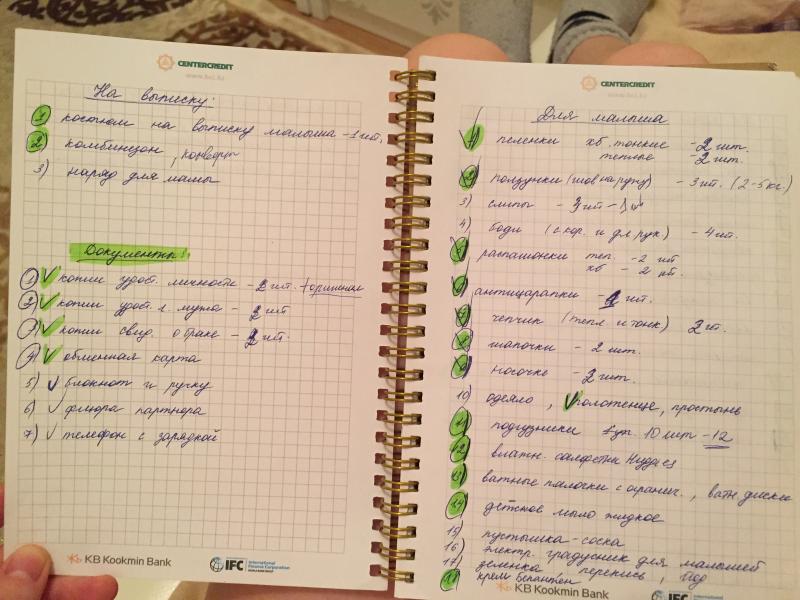 CENTERCREDIT
www.bcc.kz
На выписку:
1 костюм на выписку малыша - 1 шт.
2 комбинзон, конверт
3) наряд для мамы
Документы!
1) копии удост. личности - 2 шт. + оригинал
2) копии удост. л. мужа - 2 шт
3) копии свид. о браке - 2 шт.
4) обменная карта
5) блокнот и ручку
6) флюра партнера
7) телефон с зарядкой
KB Kookmin Bank
IFC International Finance Corporation
WORLD BANK GROUP
CENTERCREDIT
www.bcc.kz
Для малыша
1) пеленки хб. тонкие - 2 шт.
теплые - 2 шт.
2 ползунки (шов наружу) - 3 шт. (2-5 кг.)
3) слипы - 3 шт -
4) боди (с кор. и дл рук) - 4 шт.
5 распашонки теп. - 2 шт
хб - 2 шт.
6 антицарапки - шт.
7 чепчик (тепл. и тонк) 2 шт.
8 шапочки - 2 шт.
9 носочке - 2 шт.
10) одеяло, полотенце, простынь
11 подгузники 1 уп. 10 шт - 12
12 влажн. салфетки Huggies
13 ватные палочки с огранич., ватн диски
14 детское мыло жидкое
15) пустышка - соска
16) электр. градусник для малышей
17) зеленка перекись, йод
18 крем Бепантен
KB Kookmin Bank
IFC International Finance Corporation